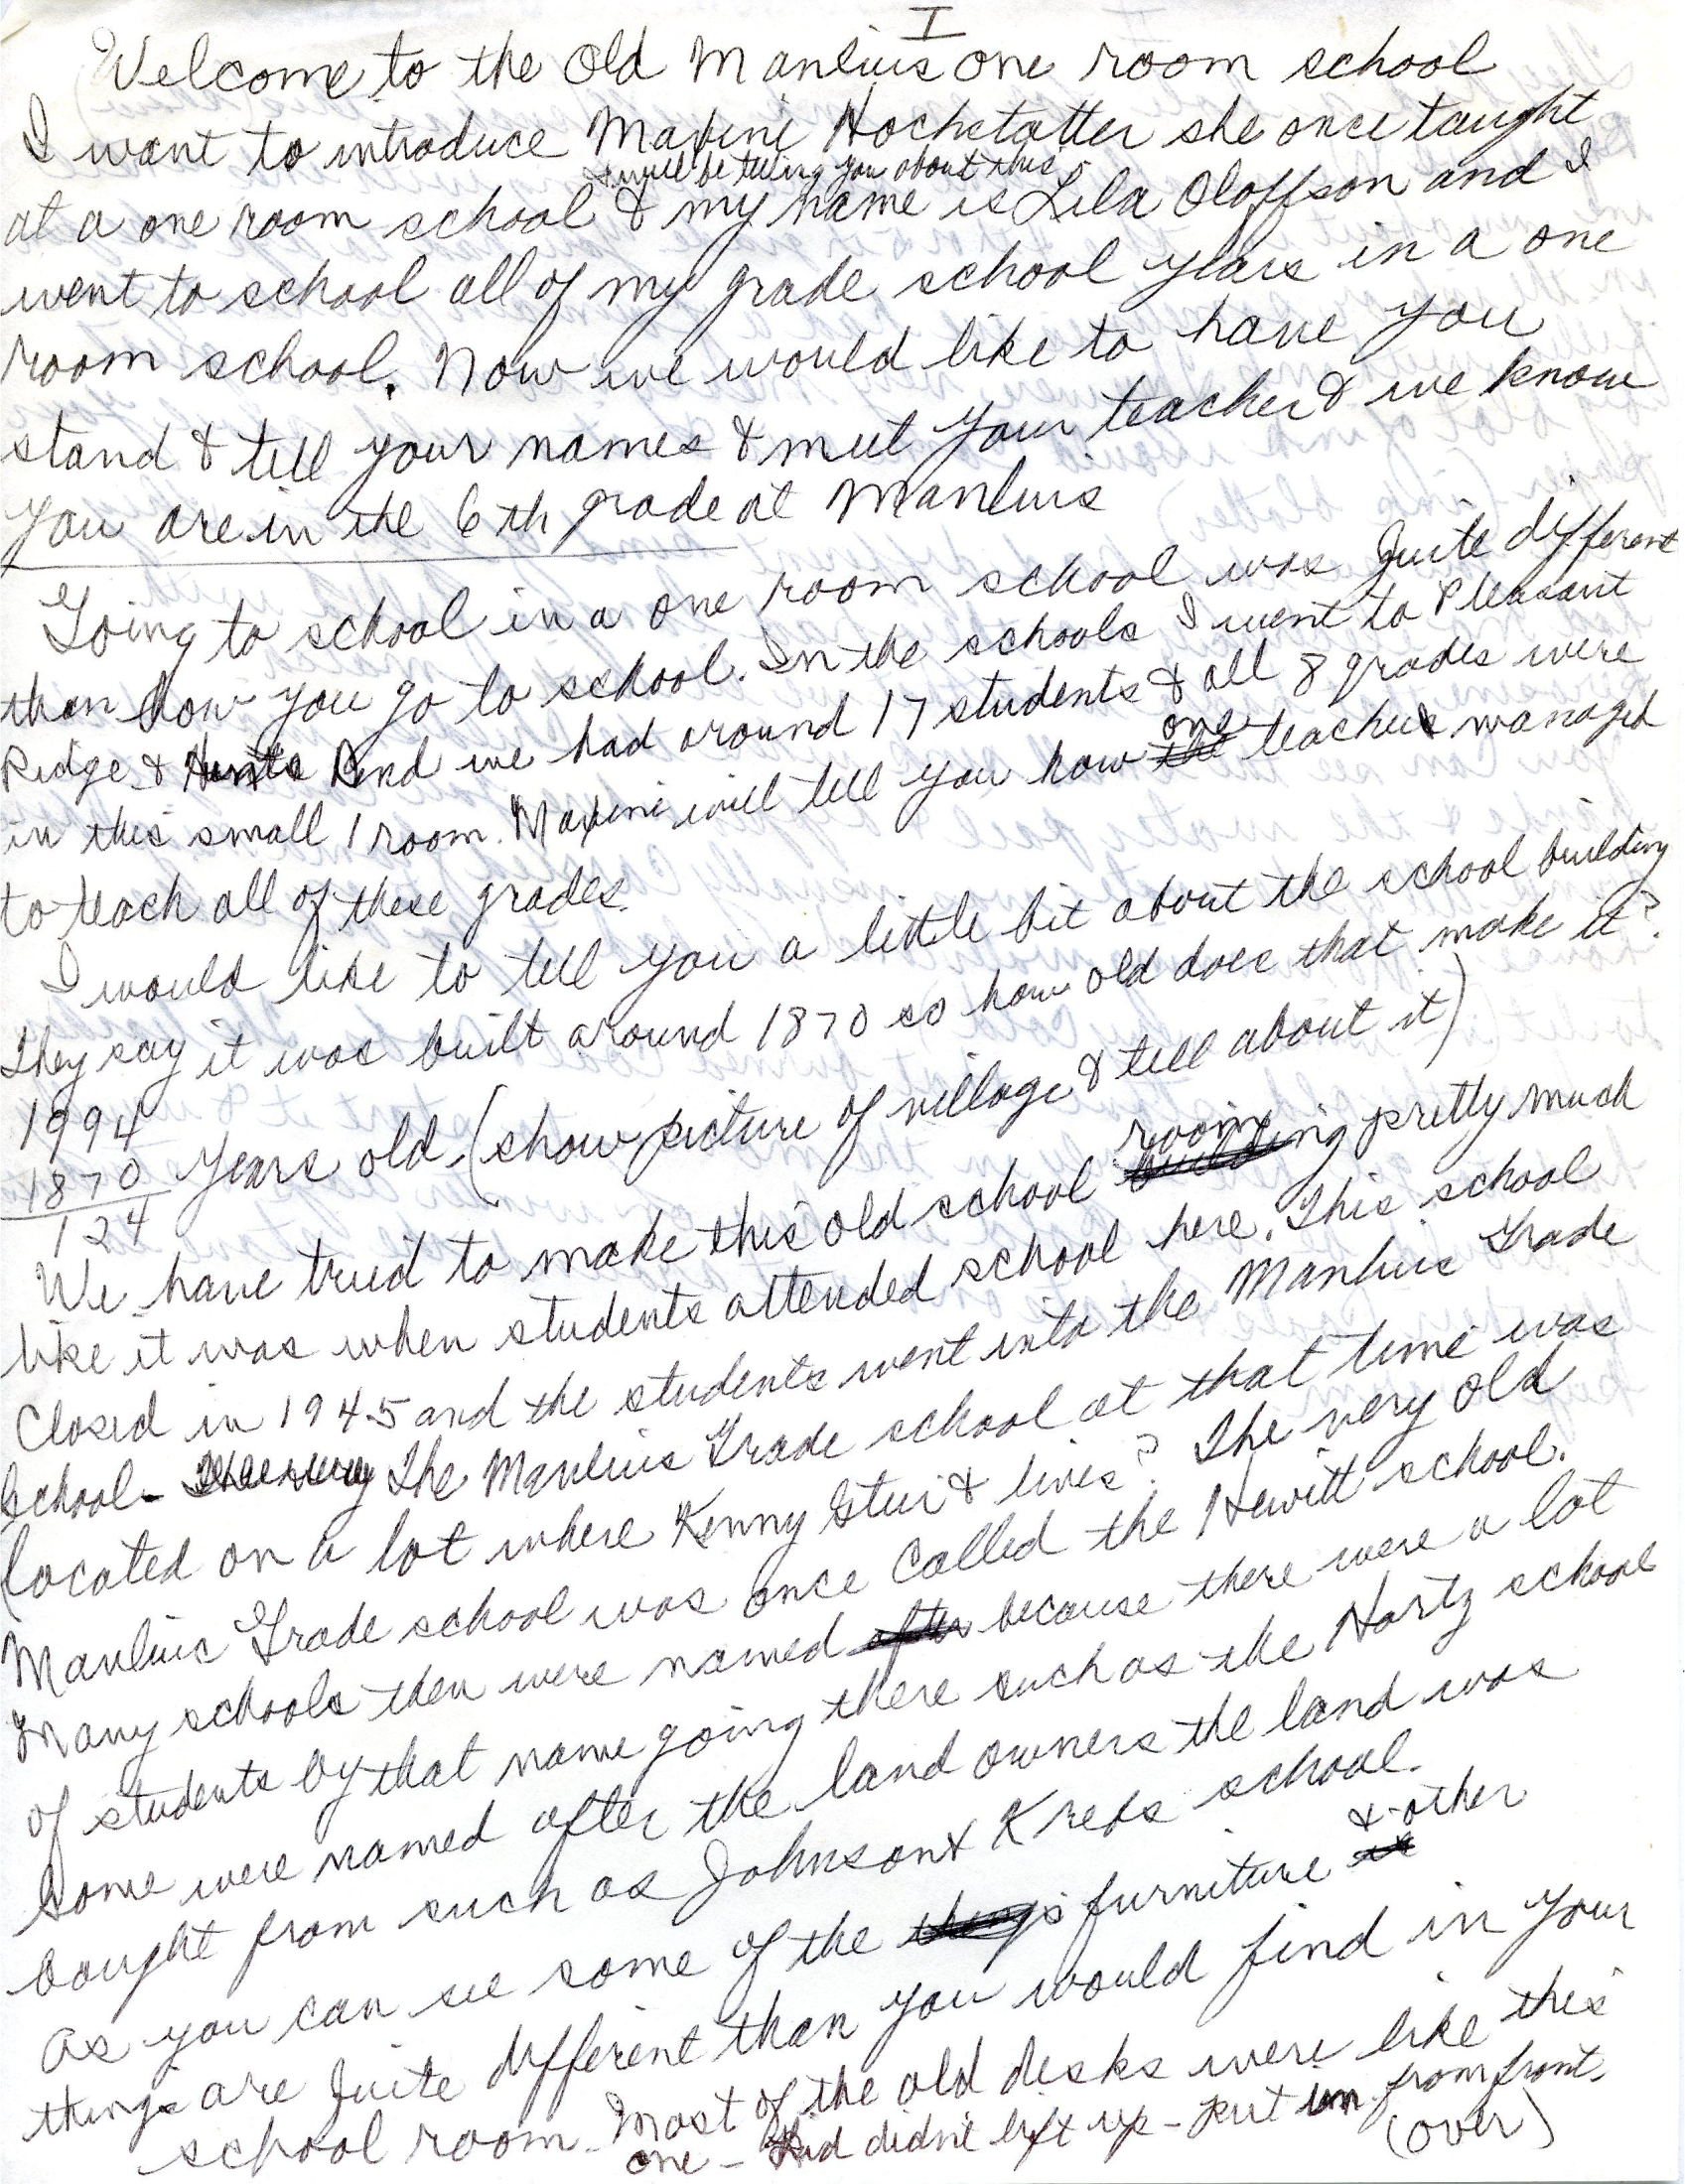 I
Welcome to the Old Manlius one room school
I want to introduce Maxine Hochstatter she once taught
I will be telling you about this
at a one room school & my name is Lila Oloffson and I
went to school all of my grade school years in a one
room school. Now we would like to have you
stand & tell your names & meet your teacher & we know
you are in the 6th grade at Manlius
Going to school in a one room school was quite different
than how you go to school. In the schools I went to Pleasant
Ridge & And we had around 17 students & all 8 grades were
one
in this small 1 room. Maxine will tell you how the teacher managed
to teach all of these grades.
I would like to tell you a little bit about the school building
They say it was built around 1870 so how old does that make it?
1994
1870 years old. (show picture of village & tell about it)
124
room
We have tried to make this old school building pretty much
like it was when students attended school here. This school
closed in 1945 and the students went into the Manlius Grade
School - The Manlius Grade school at that time was
located on a lot where Kenny lives? The very old
Manlius Grade school was once called the Hewitt school.
Many schools then were named after because there were a lot
of students by that name going there such as the Hartz school
Some were named after the land owners the land was
bought from such as Johnson & Krebs school.
& other
As you can see some of the things furniture
things are quite different than you would find in your
school room. Most of the old desks were like this
one - Lid didn't lift up - Put in from front.
(over)